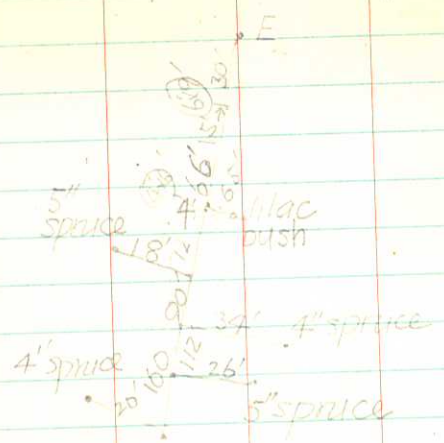 E
30'
15'
6'
lilac
bush
4'
5"
spruce
18'
12
34'
4" spruce
4" spruce
112
26'
20'
5" spruce